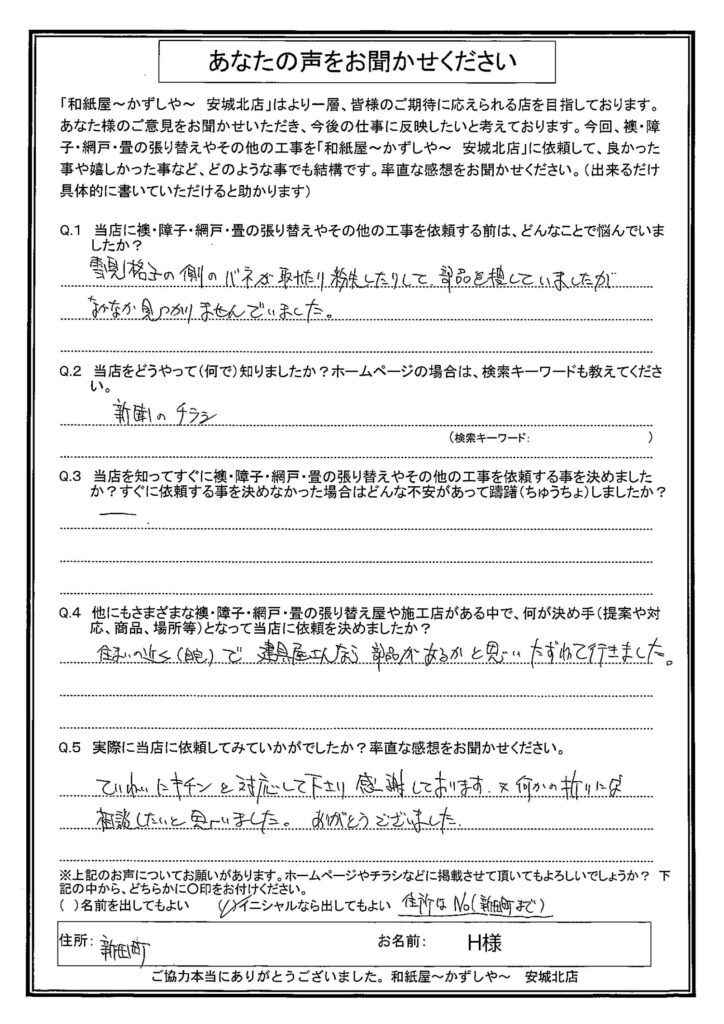 あなたの声をお聞かせください
「和紙屋～かずしや～　安城北店」はより一層、皆様のご期待に応えられる店を目指しております。
あなた様のご意見をお聞かせいただき、今後の仕事に反映したいと考えております。今回、襖・障
子・網戸・畳の張り替えやその他の工事を「和紙屋～かずしや～　安城北店」に依頼して、良かった
事や嬉しかった事など、どのような事でも結構です。率直な感想をお聞かせください。（出来るだけ
具体的に書いていただけると助かります）
Q.1　当店に襖・障子・網戸・畳の張り替えやその他の工事を依頼する前は、どんなことで悩んでいま
したか？
雪見格子の側のバネが取れたり紛失したりして、部品を捜していましたが
なかなか見つかりませんでいました。
Q.2　当店をどうやって（何で）知りましたか？ホームページの場合は、検索キーワードも教えてくださ
い。
新聞のチラシ
（検索キーワード：　　　　　　　　　）
Q.3　当店を知ってすぐに襖・障子・網戸・畳の張り替えやその他の工事を依頼する事を決めました
か？すぐに依頼する事を決めなかった場合はどんな不安があって躊躇（ちゅうちょ）しましたか？
Q.4　他にもさまざまな襖・障子・網戸・畳の張り替え屋や施工店がある中で、何が決め手（提案や対
応、商品、場所等）となって当店に依頼を決めましたか？
住まいの近く（自宅）で 建具屋さんなら 部品があるかと思い たずねて行きました。
Q.5　実際に当店に依頼してみていかがでしたか？率直な感想をお聞かせください。
ていねいにキチンと対応して下さり 感謝しております．又何かの折りには
相談したいと思いました。 ありがとうございました．
※上記のお声についてお願いがあります。ホームページやチラシなどに掲載させて頂いてもよろしいでしょうか？　下
記の中から、どちらかに〇印をお付けください。
（　）名前を出してもよい　　（〇）イニシャルなら出してもよい　住所はNo（新田町まで）
住所：　新田町　　お名前：　H様
ご協力本当にありがとうございました。和紙屋～かずしや～　安城北店